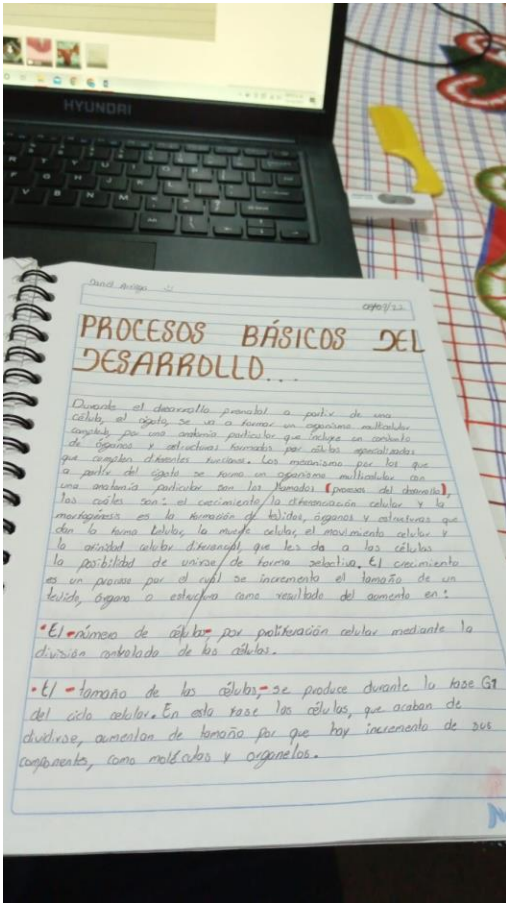 HYUNDAI
David Arriaga
PROCESOS BÁSICOS DEL
DESARROLLO...
Durante el desarrollo prenatal a partir de una
célula, el cigoto, se va a formar un organismo multicelular
complejo, por una anatomía particular que incluye un conjunto
de órganos y estructuras formados por células especializadas
que cumplen diferentes funciones. Los mecanismo por los que
a partir del cigoto se forma un organismo multicelular con
una anatomía particular son los llamados (procesos del desarrollo),
los cuáles son: el crecimiento, la diferenciación celular y la
morfogénesis es la formación de tejidos, órganos y estructuras que
dan la forma celular, la muerte celular, el movimiento celular y
la afinidad celular diferencial, que les da a las células
la posibilidad de unirse de forma selectiva. El crecimiento
es un proceso por el cual se incrementa el tamaño de un
tejido, órgano o estructura como resultado del aumento en:
•El-número de células- por proliferación celular mediante la
división controlada de las células.
•El-tamaño de las células,- se produce durante la fase G1
del ciclo celular. En esta fase las células, que acaban de
dividirse, aumentan de tamaño por que hay incremento de sus
componentes, como moléculas y organelos.